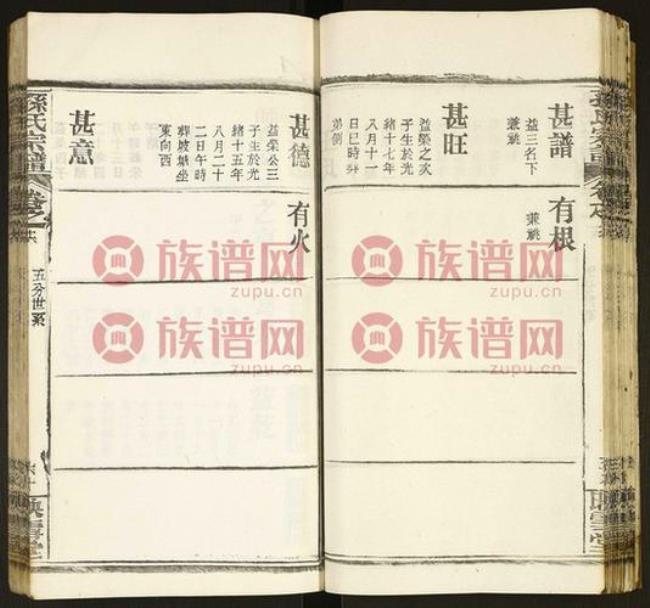 甚譜
益三名下
兼祧
有根
兼祧
甚旺
益榮之次
子生於光
緒十七年
八月十一
日巳時
弟側
甚德
益榮公三
子生於光
緒十五年
八月二十
二日午時
葬坡塘坐
東向西
有火
甚意
孫氏宗譜
卷之
五分世系
映雪堂
族谱网
zupu.cn
族谱网
zupu.cn
族谱网
zupu.cn
族谱网
zupu.cn